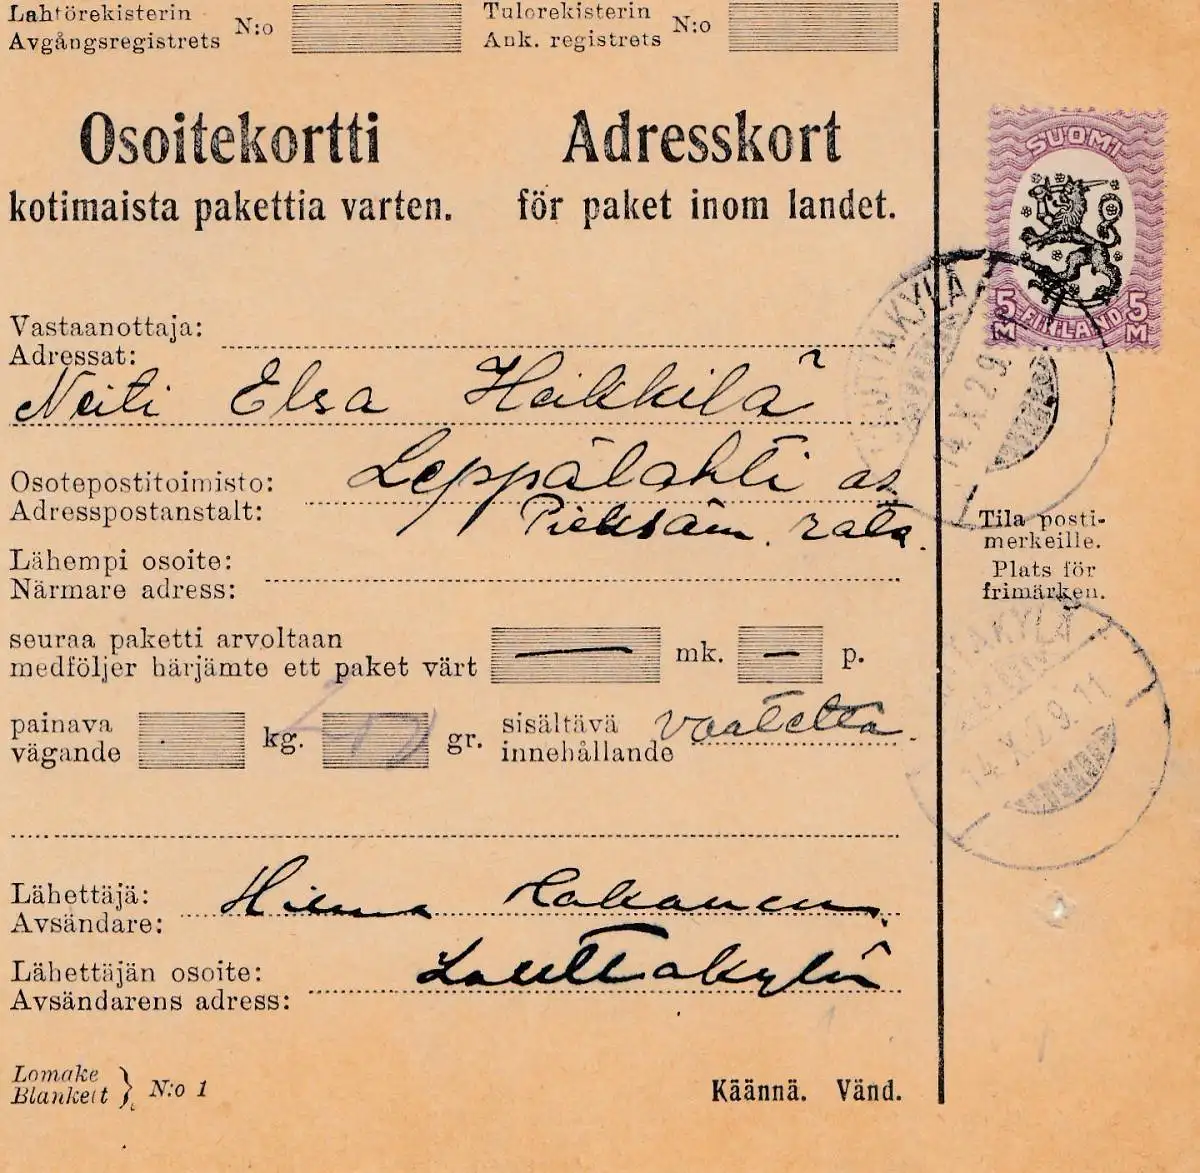 Lähtörekisterin
Avgångsregistrets
N:o
Tulorekisterin
Ank. registrets
N:o
Osoitekortti
kotimaista pakettia varten.
Adresskort
för paket inom landet.
SUOMI
5 M
FINLAND
5 M
Vastaanottaja:
Adressat:
Neiti Elsa Heikkilä
Osotepostitoimisto:
Adresspostanstalt:
Leppälahti as
Pieksäm. rata.
Lähempi osoite:
Närmare adress:
Tila posti-
merkeille.
Plats för
frimärken.
seuraa paketti arvoltaan
medföljer härjämte ett paket värt
— mk. — p.
painava
vägande
kg.
gr.
sisältävä
innehållande
vaatetta.
14.X.29.11
Lähettäjä:
Avsändare:
Hilma
Lähettäjän osoite:
Avsändarens adress:
Lauttakylä
Lomake
Blankett
} N:o 1
Käännä. Vänd.